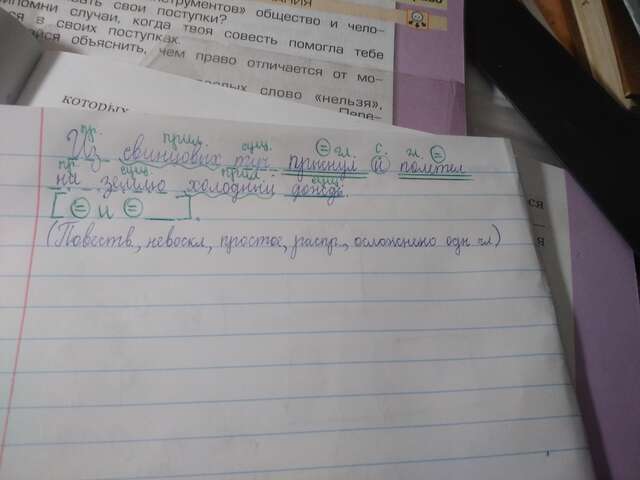 овать свои поступки?
нструментов» общество и чело-
ипомни случаи, когда твоя совесть помогла тебе
ся в своих поступках.
айся объяснить, чем право отличается от мо-
слово «нельзя»,
которых
пр. прил. сущ. гл. с. гл.
Из свинцовых туч прыснул и полетел
пр. сущ. прил. сущ.
на землю холодный дождь.
[ = и = __ ].
(Повеств., невоскл., простое, распр., осложнено одн гл)